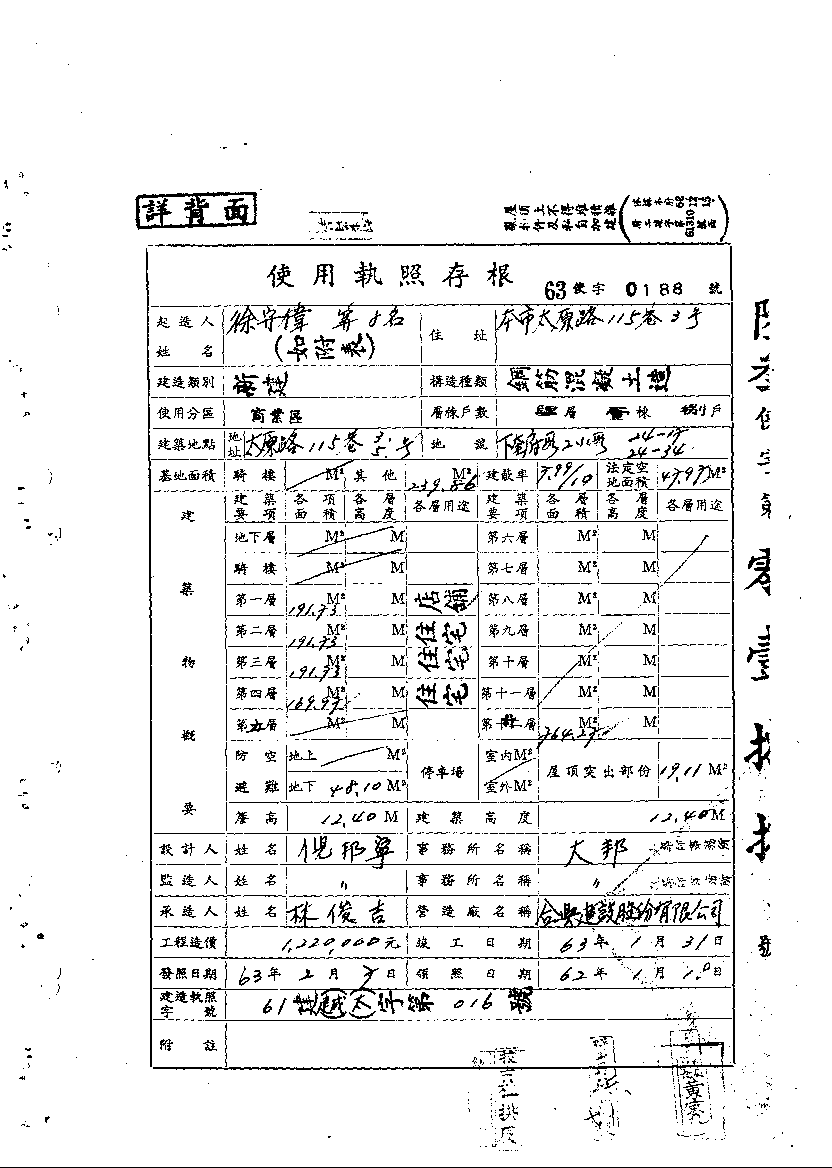 詳背面
屋頂上不得堆積雜
使用執照存根
63 使字 0188 號
起造人姓名 徐守偉 等8名 (如附表) 住址 本市太原路115巷3号
建造類別 新建 構造種類 鋼筋混凝土造
使用分區 商業區 層棟戶數 層 棟 捌戶
建築地點 地址 太原路115巷3.5.号 地號 24-34
基地面積 騎樓 M² 其他 239.86 M² 建蔽率 7.99/10 法定空地面積 47.97 M²
建築物概要 建築要項 各項面積 各層高度 各層用途 建築要項 各層面積 各層高度 各層用途
地下層 M² M 第六層 M² M
騎樓 M² M 第七層 M² M
第一層 191.93 M² M 店舖 第八層 M² M
第二層 191.93 M² M 住宅 第九層 M² M
第三層 191.93 M² M 住宅 第十層 M² M
第四層 169.99 M² M 住宅 第十一層 M² M
第五層 M² M 第十二層 M² M
防空避難 地上 M² 停車場 室內M² 屋頂突出部份 19.11 M²
地下 48.10 M² 室外M²
簷高 12.40 M 建築高度 12.40 M
設計人 姓名 倪邦寧 事務所名稱 大邦
監造人 姓名 〃 事務所名稱 〃
承造人 姓名 林俊吉 營造廠名稱 合興建設股份有限公司
工程造價 1,220,000元 竣工日期 63年1月31日
發照日期 63年2月7日 領照日期 62年1月10日
建造執照字號 61建(太)字第016號
附註